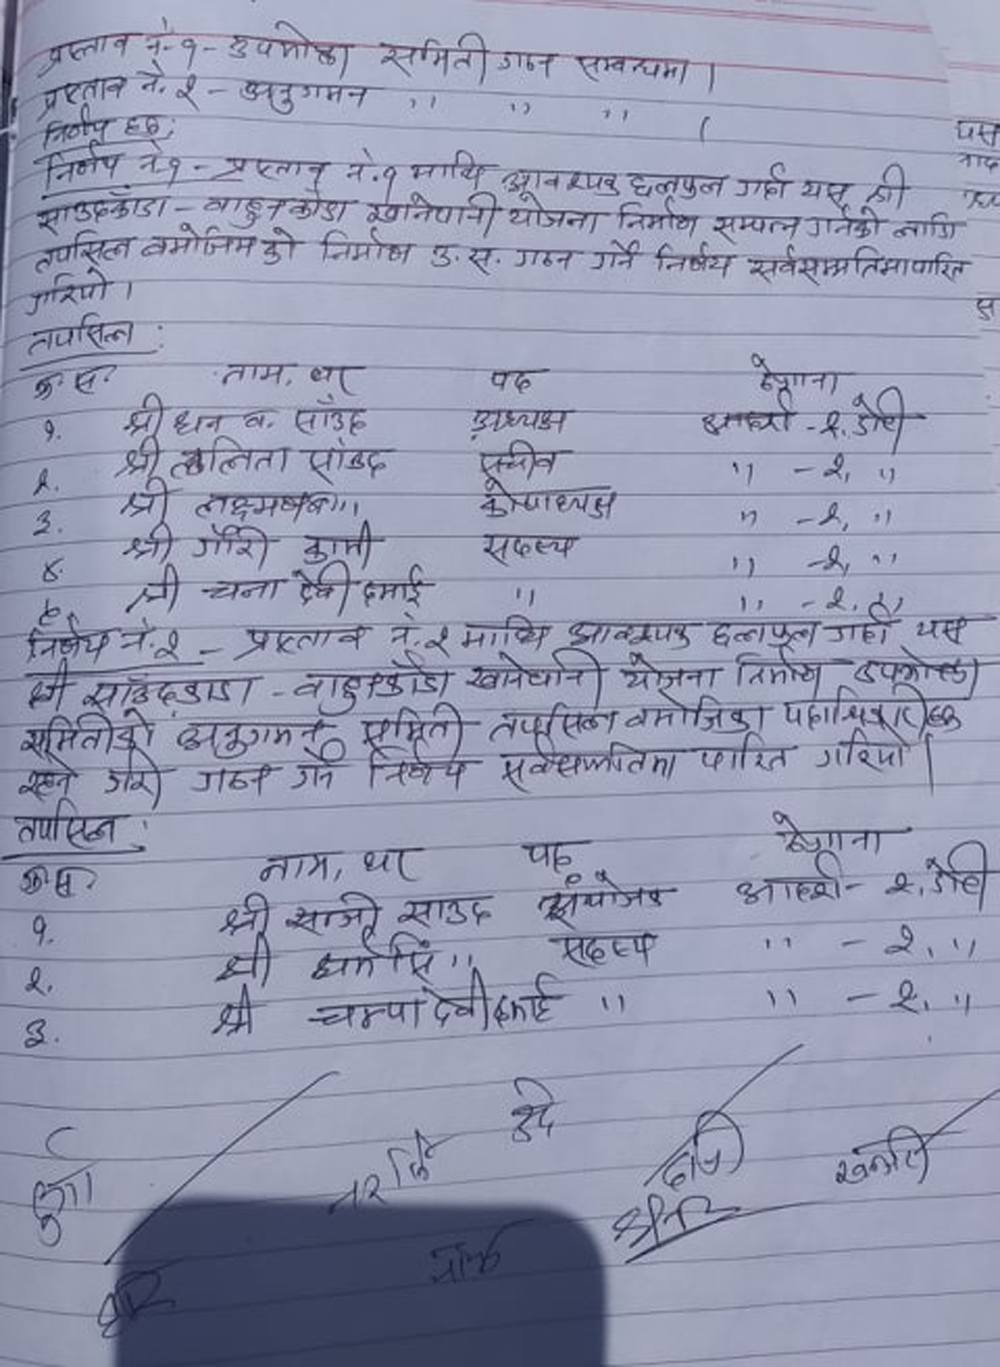 प्रस्ताव नं. १ - उपभोक्ता समिती गठन सम्बन्धमा ।
प्रस्ताव नं. २ - अनुगमन " " " ।
निर्णय हरु:
निर्णय नं. १ - प्रस्ताव नं. १ माथि आवश्यक छलफल गर्दा यस श्री
साउदकाँडा - वाहुनकाँडा खानेपानी योजना निर्माण सम्पन्न गर्नको लागि
तपसिल वमोजिमको निर्माण उ. स. गठन गर्ने निर्णय सर्वसम्मतिमा पारित
गरियो ।
तपसिल :
क्र. स. नाम, थर पद ठेगाना
१. श्री धन व. साँउद अध्यक्ष आदर्श - २, डोटी
२. श्री ललिता साँउद सचीव " - २, "
३. श्री लक्ष्मण " कोषाध्यक्ष " - २, "
४. श्री गौरी कामी सदस्य " - २, "
५. श्री चना देवी दमाई " " - २, "
निर्णय नं. २ - प्रस्ताव नं. २ माथि आवश्यक छलफल गर्दा यस
श्री साउँदकाडा - वाहुनकाँडा खानेपानी योजना निर्माण उपभोक्ता
समितीको अनुगमन समिती तपसिल वमोजिमका पदाधिकारीहरु
रहने गरी गठन गर्ने निर्णय सर्वसम्मतिमा पारित गरियो ।
तपसिल :
क्र. स. नाम, थर पद ठेगाना
१. श्री साजी साउद संयोजक आदर्श - २, डोटी
२. श्री धर्म सिं " सदस्य " - २, "
३. श्री चम्पा देवी दमाई " " - २, "